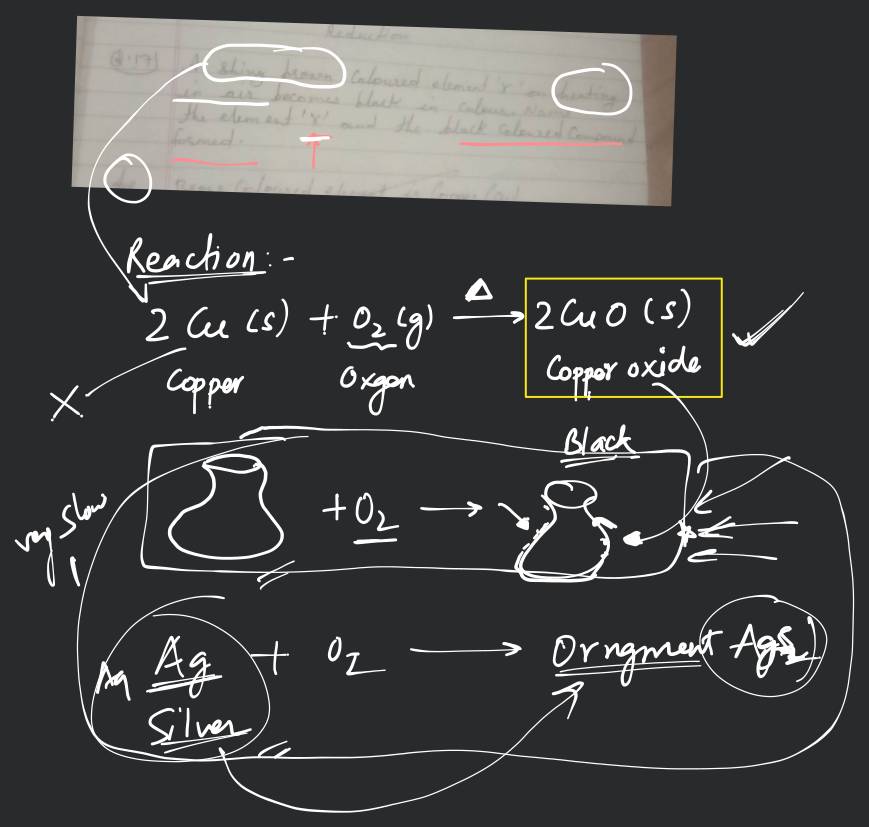 Reduction
Q.17) A shiny brown coloured element 'x' on heating
in air becomes black in colour. Name
the element 'x' and the black coloured compound
formed.
Reaction:-
2 Cu (s) + O2 (g) Δ → 2 CuO (s)
Copper Oxgen Copper oxide
X
Black
+ O2 →
very slow
Aq Ag + O2 → Orngment AgS2
Silver